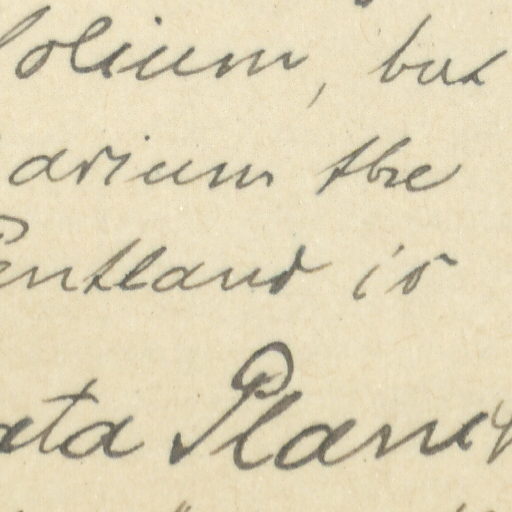 folium, but
arium the
Pentland is
ata Planch